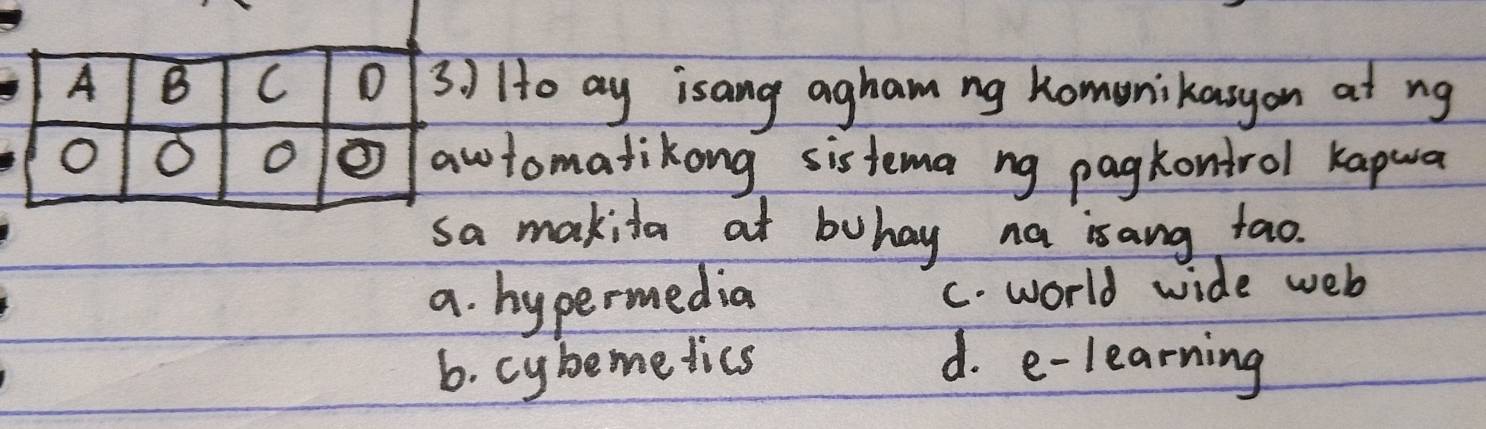 A B C D 3.) Ito ay isang agham ng komunikasyon at ng
O O O O awtomatikong sistema ng pagkontrol kapwa
sa makita at buhay na isang tao.
a. hypermedia c. world wide web
b. cybemetics d. e-learning